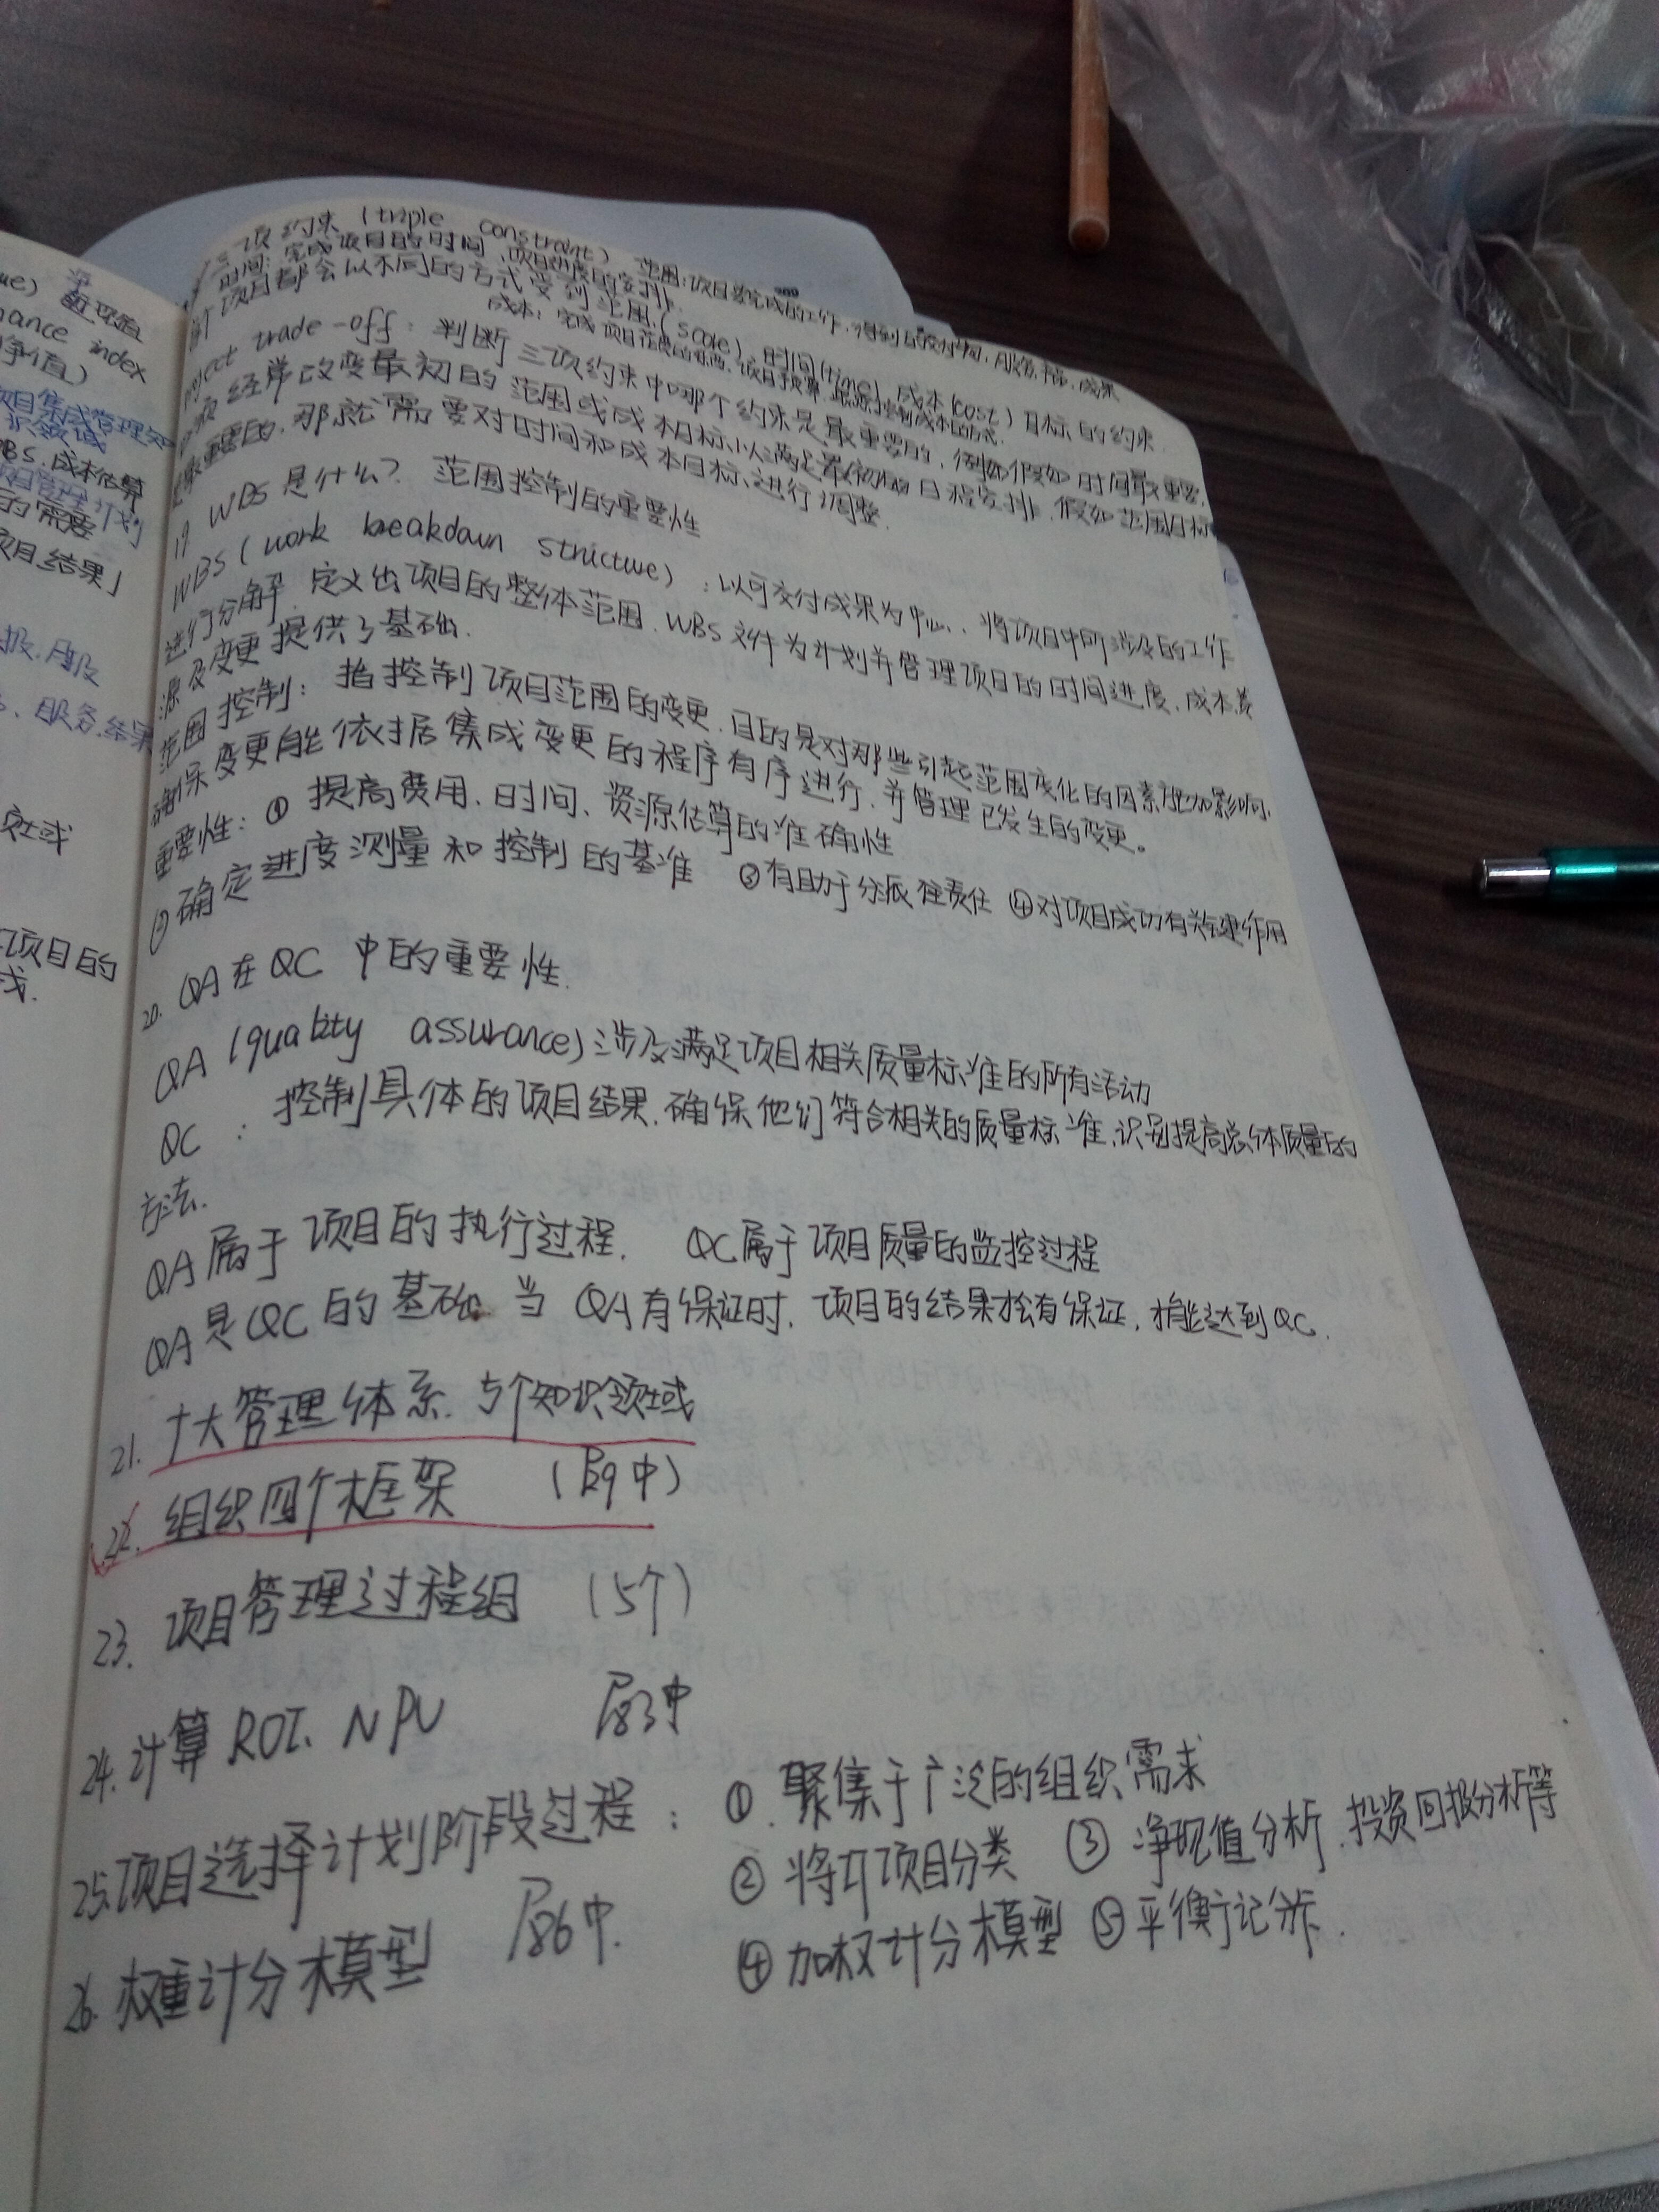 ue) 净现值
mance index
净值)
项目集成管理知
识领域
WBS.成本估算
项目管理计划
的需要
项目结果」
报.月报
、服务.结果
域
项目的
三项约束 (triple constraint) 范围:项目要完成的工作.
时间:完成项目的时间,项目进度的安排.
成本:完成项目花费的
每个项目都会以不同的方式受到范围(scale)、时间(time)、成本(cost)目标的约束.
project trade-off:判断三项约束中哪个约束是最重要的,例如假如时间最重要,
经常改变最初的范围或成本目标以满足最初的日程安排.假如范围目标
是最重要的,那就需要对时间和成本目标进行调整.
19 WBS是什么?范围控制的重要性
WBS(work breakdown structure):以可交付成果为中心、将项目中所涉及的工作
进行分解.定义出项目的整体范围.WBS文件为计划并管理项目的时间进度、成本资
源及变更提供了基础.
范围控制:指控制项目范围的变更.目的是对那些引起范围变化的因素施加影响,
确保变更能依据集成变更的程序有序进行,并管理已发生的变更。
重要性:① 提高费用、时间、资源估算的准确性
②确定进度测量和控制的基准 ③有助于分派责任 ④对项目成功有关键作用
20. QA在QC中的重要性.
QA (quality assurance)涉及满足项目相关质量标准的所有活动
QC : 控制具体的项目结果.确保他们符合相关的质量标准,识别提高总体质量的
方法.
QA属于项目的执行过程. QC属于项目质量的监控过程
QA是QC的基础.当QA有保证时,项目的结果才会有保证,才能达到QC.
21. 十大管理体系.5个知识领域
22. 组织四个框架 (P29中)
23. 项目管理过程组 (5个)
24. 计算ROI、NPV P83中
25.项目选择计划阶段过程: ①.聚集于广泛的组织需求
②将IT项目分类 ③净现值分析.投资回报分析等
④加权计分模型 ⑤平衡记分卡.
26.权重计分模型 P86中.